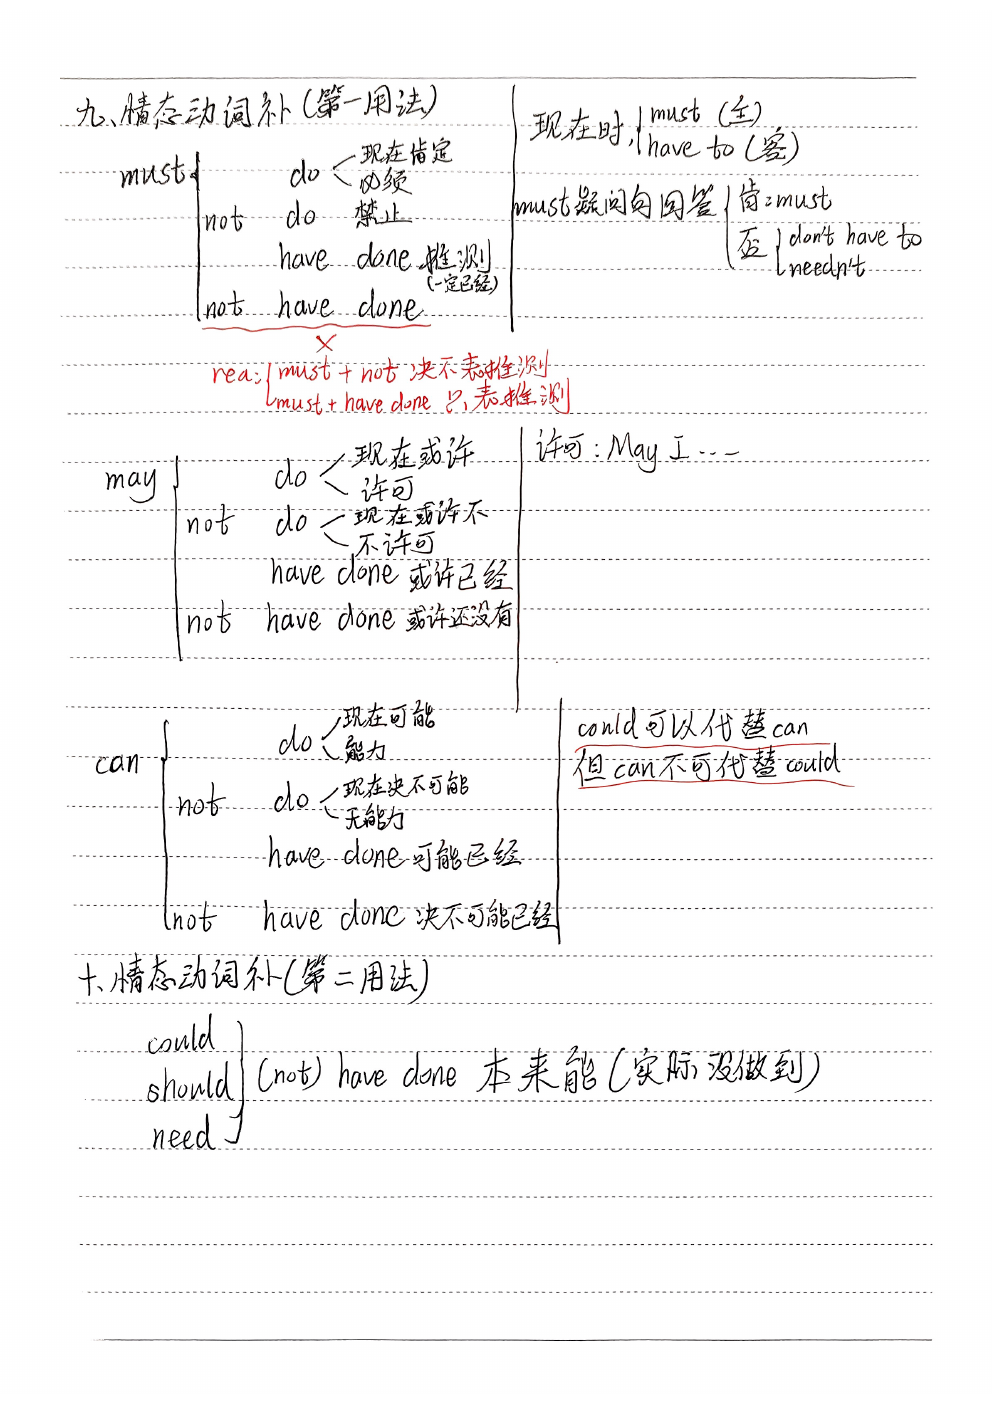 九、情态动词补(第一用法)
must
do 现在肯定
必须
not do 禁止
have done 推测
(一定已经)
not have done
×
rea: must + not 决不表推测
must + have done 只表推测
现在时, must (主)
have to (客)
must疑问句回答 肯: must
否 don't have to
needn't
may
do 现在或许
许可
not do 现在或许不
不许可
have done 或许已经
not have done 或许还没有
许可: May I ...
can
do 现在可能
能力
not do 现在决不可能
无能力
have done 可能已经
not have done 决不可能已经
could可以代替can
但can不可代替could
十、情态动词补(第二用法)
could
should
need
(not) have done 本来能(实际没做到)